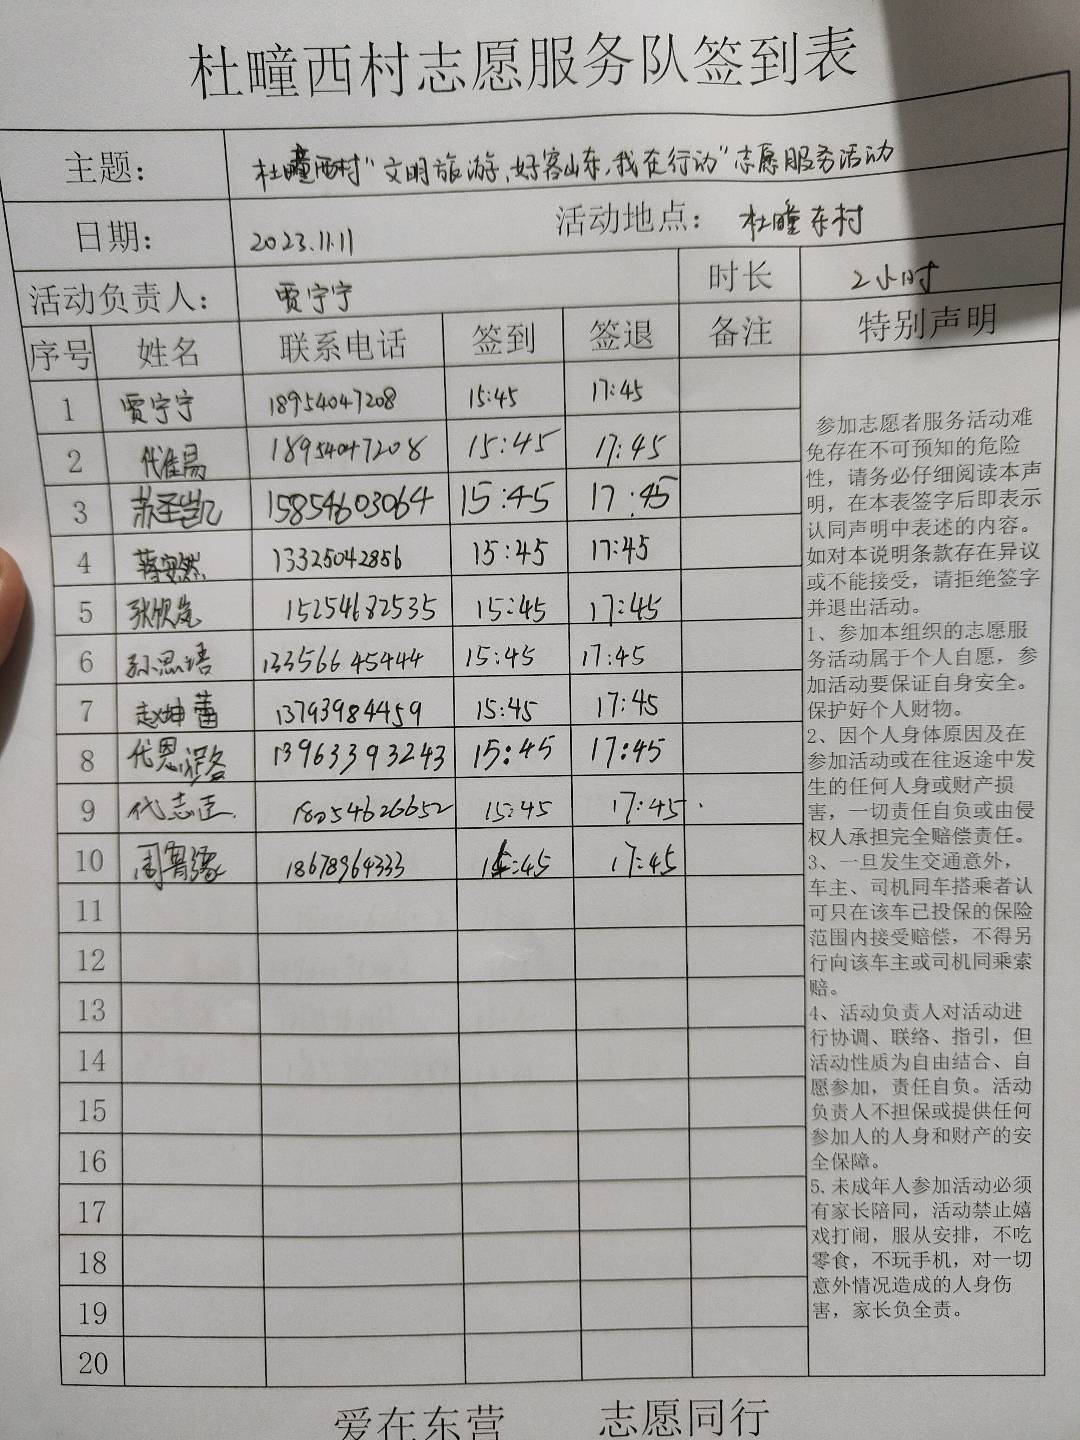 杜疃西村志愿服务队签到表
主题: 杜疃西村“文明旅游,好客山东,我在行动”志愿服务活动
日期: 2023.11.11 活动地点: 杜疃东村
活动负责人: 贾宁宁 时长 2小时
序号 姓名 联系电话 签到 签退 备注 特别声明
1 贾宁宁 18954047208 15:45 17:45
2 代佳易 18954047208 15:45 17:45
3 苏圣凯 15854603064 15:45 17:45
4 蒋安然 13325042856 15:45 17:45
5 张欣岚 15254682535 15:45 17:45
6 孙思语 13356645444 15:45 17:45
7 赵坤蕾 13793984459 15:45 17:45
8 代恩 13963393243 15:45 17:45
9 代志 18054626652 15:45 17:45
10 周 18678964333 15:45 17:45
11
12
13
14
15
16
17
18
19
20
参加志愿者服务活动难
免存在不可预知的危险
性，请务必仔细阅读本声
明，在本表签字后即表示
认同声明中表述的内容。
如对本说明条款存在异议
或不能接受，请拒绝签字
并退出活动。
1、参加本组织的志愿服
务活动属于个人自愿，参
加活动要保证自身安全。
保护好个人财物。
2、因个人身体原因及在
参加活动或在往返途中发
生的任何人身或财产损
害，一切责任自负或由侵
权人承担完全赔偿责任。
3、一旦发生交通意外，
车主、司机同车搭乘者认
可只在该车已投保的保险
范围内接受赔偿，不得另
行向该车主或司机同乘索
赔。
4、活动负责人对活动进
行协调、联络、指引，但
活动性质为自由结合、自
愿参加，责任自负。活动
负责人不担保或提供任何
参加人的人身和财产的安
全保障。
5.未成年人参加活动必须
有家长陪同，活动禁止嬉
戏打闹，服从安排，不吃
零食，不玩手机，对一切
意外情况造成的人身伤
害，家长负全责。
爱在东营 志愿同行